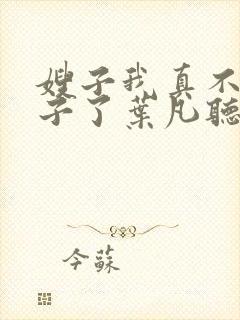 嫂子我真不
子了葉凡聽
今蘇